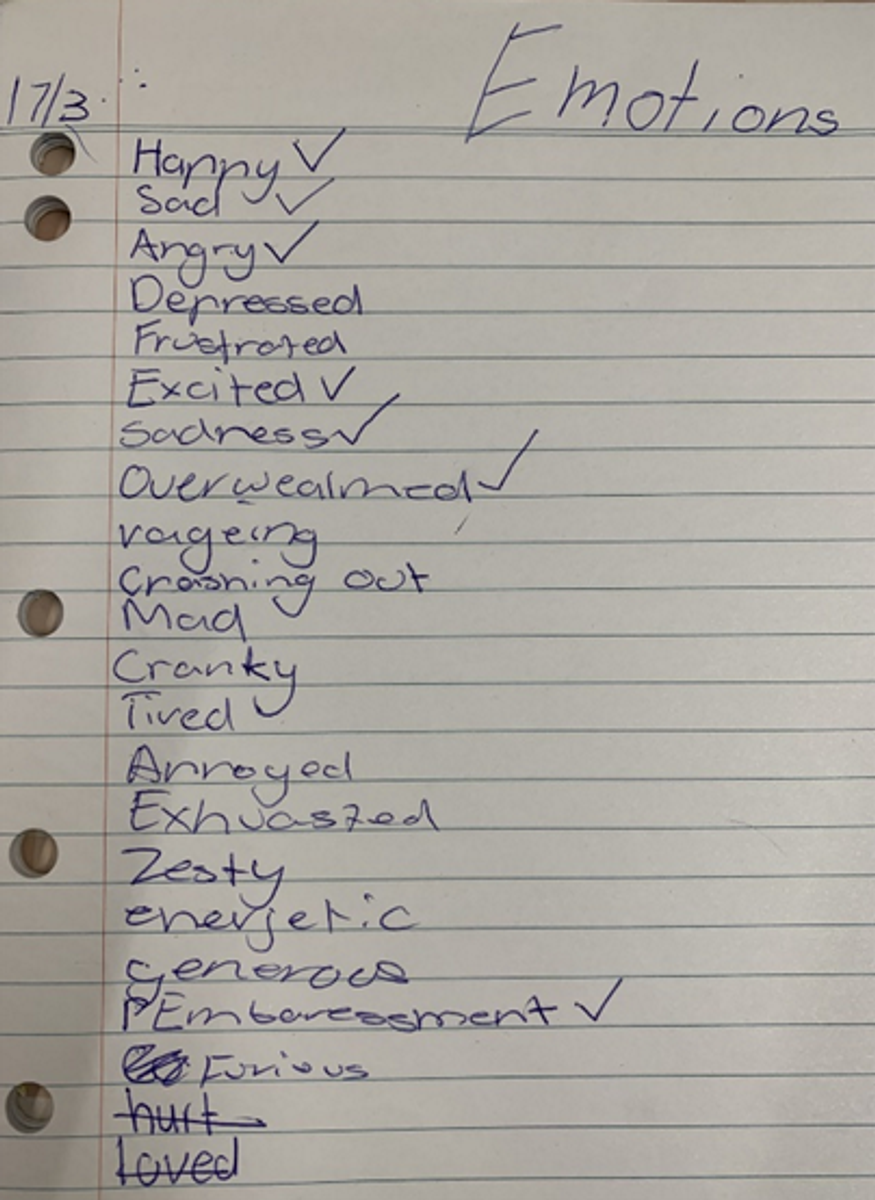 Emotions
17/3
Happy ✓
Sad ✓
Angry ✓
Depressed
Frustrated
Excited ✓
Sadness ✓
Overwealmed ✓
rageing
Crashing out
Mad
Cranky
Tired
Annoyed
Exhuasted
Zesty
energetic
generous
Embaressment ✓
Furious
hurt
loved